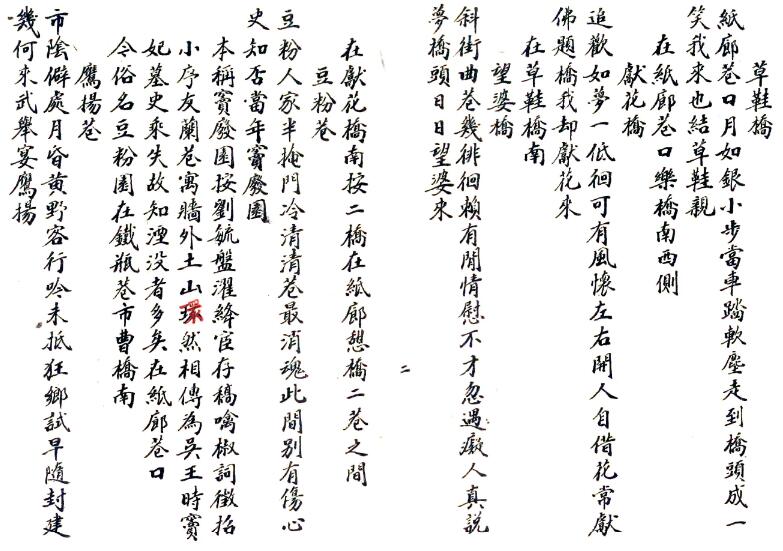 草鞋橋
紙廊巷口月如銀小步當車踏軟塵走到橋頭成一
笑我來也結草鞋親
在紙廊巷口樂橋南西側
獻花橋
追歡如夢一低徊可有風懷左右開人自借花常獻
佛題橋我却獻花來
在草鞋橋南
望婆橋
斜街曲巷幾徘徊賴有閒情慰不才忽遇癡人真説
夢橋頭日日望婆來
二
在獻花橋南按二橋在紙廊憩橋二巷之間
豆粉巷
豆粉人家半掩門冷清清巷最消魂此間別有傷心
史知否當年竇廢園
本稱竇廢園按劉毓盤濯絳宦存稿噙椒詞徵招
小序友蘭巷寓牆外土山環然相傳為吳王時竇
妃墓史乘失故知湮没者多矣在紙廊巷口
令俗名豆粉園在鐵瓶巷市曹橋南
鷹揚巷
市陰僻處月昏黄野客行吟未抵狂鄉試早隨封建
幾何來武舉宴鷹揚